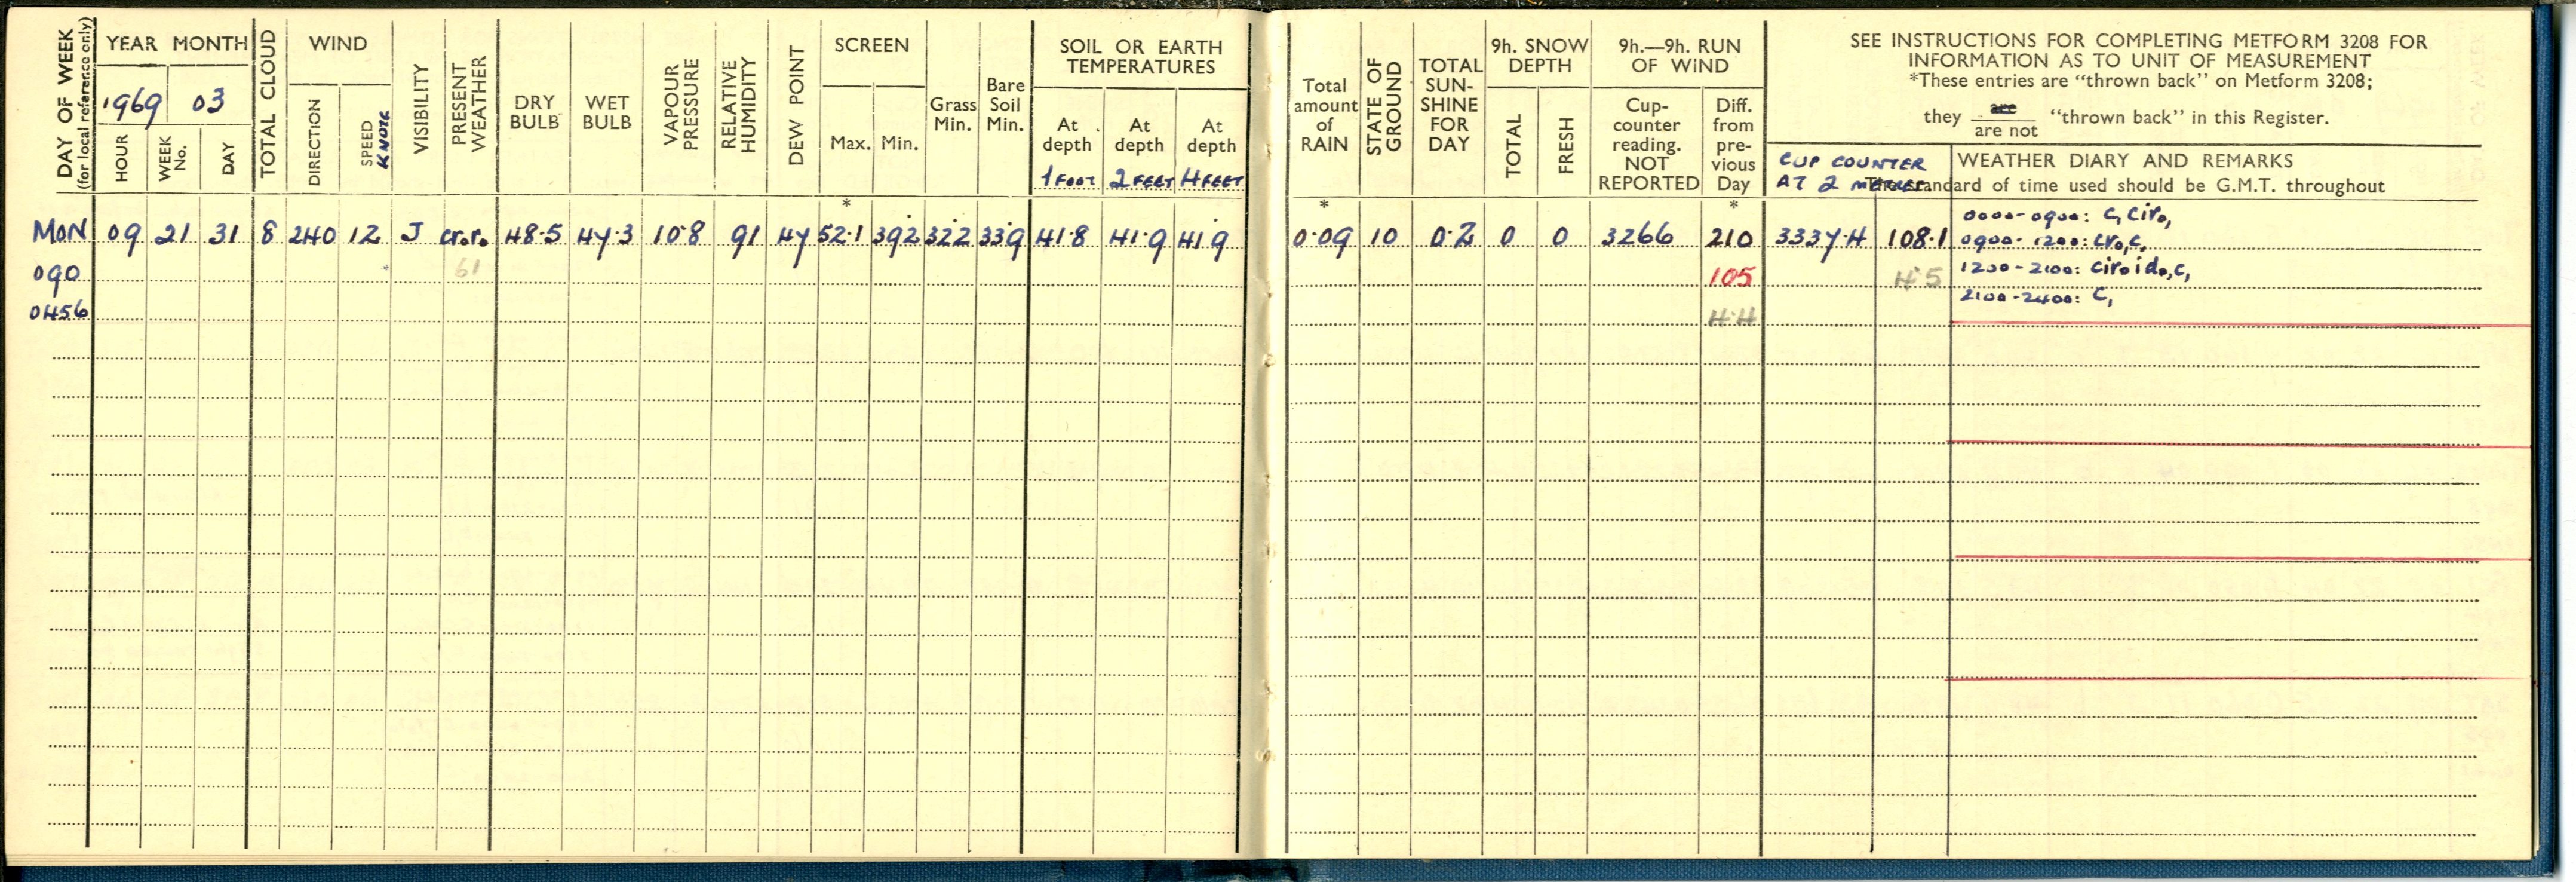 DAY OF WEEK
(for local reference only)
YEAR MONTH
1969 03
HOUR
WEEK No.
DAY
TOTAL CLOUD
WIND
DIRECTION
SPEED
KNOTS
VISIBILITY
PRESENT WEATHER
DRY BULB
WET BULB
VAPOUR PRESSURE
RELATIVE HUMIDITY
DEW POINT
SCREEN
Max. Min.
Grass Min.
Bare Soil Min.
SOIL OR EARTH TEMPERATURES
At depth 1 FOOT
At depth 2 FEET
At depth 4 FEET
Total amount of RAIN
STATE OF GROUND
TOTAL SUN-SHINE FOR DAY
9h. SNOW DEPTH
TOTAL
FRESH
9h.—9h. RUN OF WIND
Cup-counter reading. NOT REPORTED
Diff. from pre-vious Day
SEE INSTRUCTIONS FOR COMPLETING METFORM 3208 FOR
INFORMATION AS TO UNIT OF MEASUREMENT
*These entries are "thrown back" on Metform 3208;
they are
are not "thrown back" in this Register.
CUP COUNTER
AT 2 METRES
WEATHER DIARY AND REMARKS
standard of time used should be G.M.T. throughout
* * *
MON 09 21 31 8 240 12 J cr.r. 48.5 47.3 10.8 91 47 52.1 39.2 32.2 33.9 41.8 41.9 41.9 0.09 10 0.2 0 0 3266 210 3337.4 108.1
0000-0900: c, ciro,
0900-1200: cro,c,
090 61 105 4.5
1200-2100: ciroido,c,
0456 4.4
2100-2400: C,